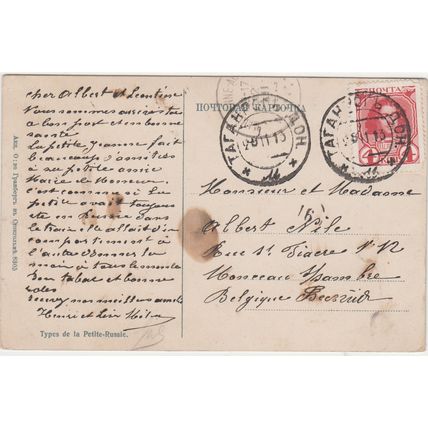 cher Albert et Léontine
Nous sommes arrivés
a bon port et en bonne
santé
La petite Jeanne fait
beaucoup d'amitiés
à sa petite amie
Marie de Monceau
c'est comme si la
petite avait toujours
été en Russie dans
le train elle allait d'un
compartiment à
l'autre donner la
main à tous le monde
Bon tabac et bonne
meilleurs amis
Henri et
Types de la Petite-Russie.
ПОЧТОВАЯ КАРТОЧКА
ТАГАНРОГЪ ДОН.
ТАГАНРОГЪ ДОН.
ПОЧТА
Monsieur et Madame
Albert Nile
Rue St Fiacre N 12
Monceau s/Sambre
Belgique